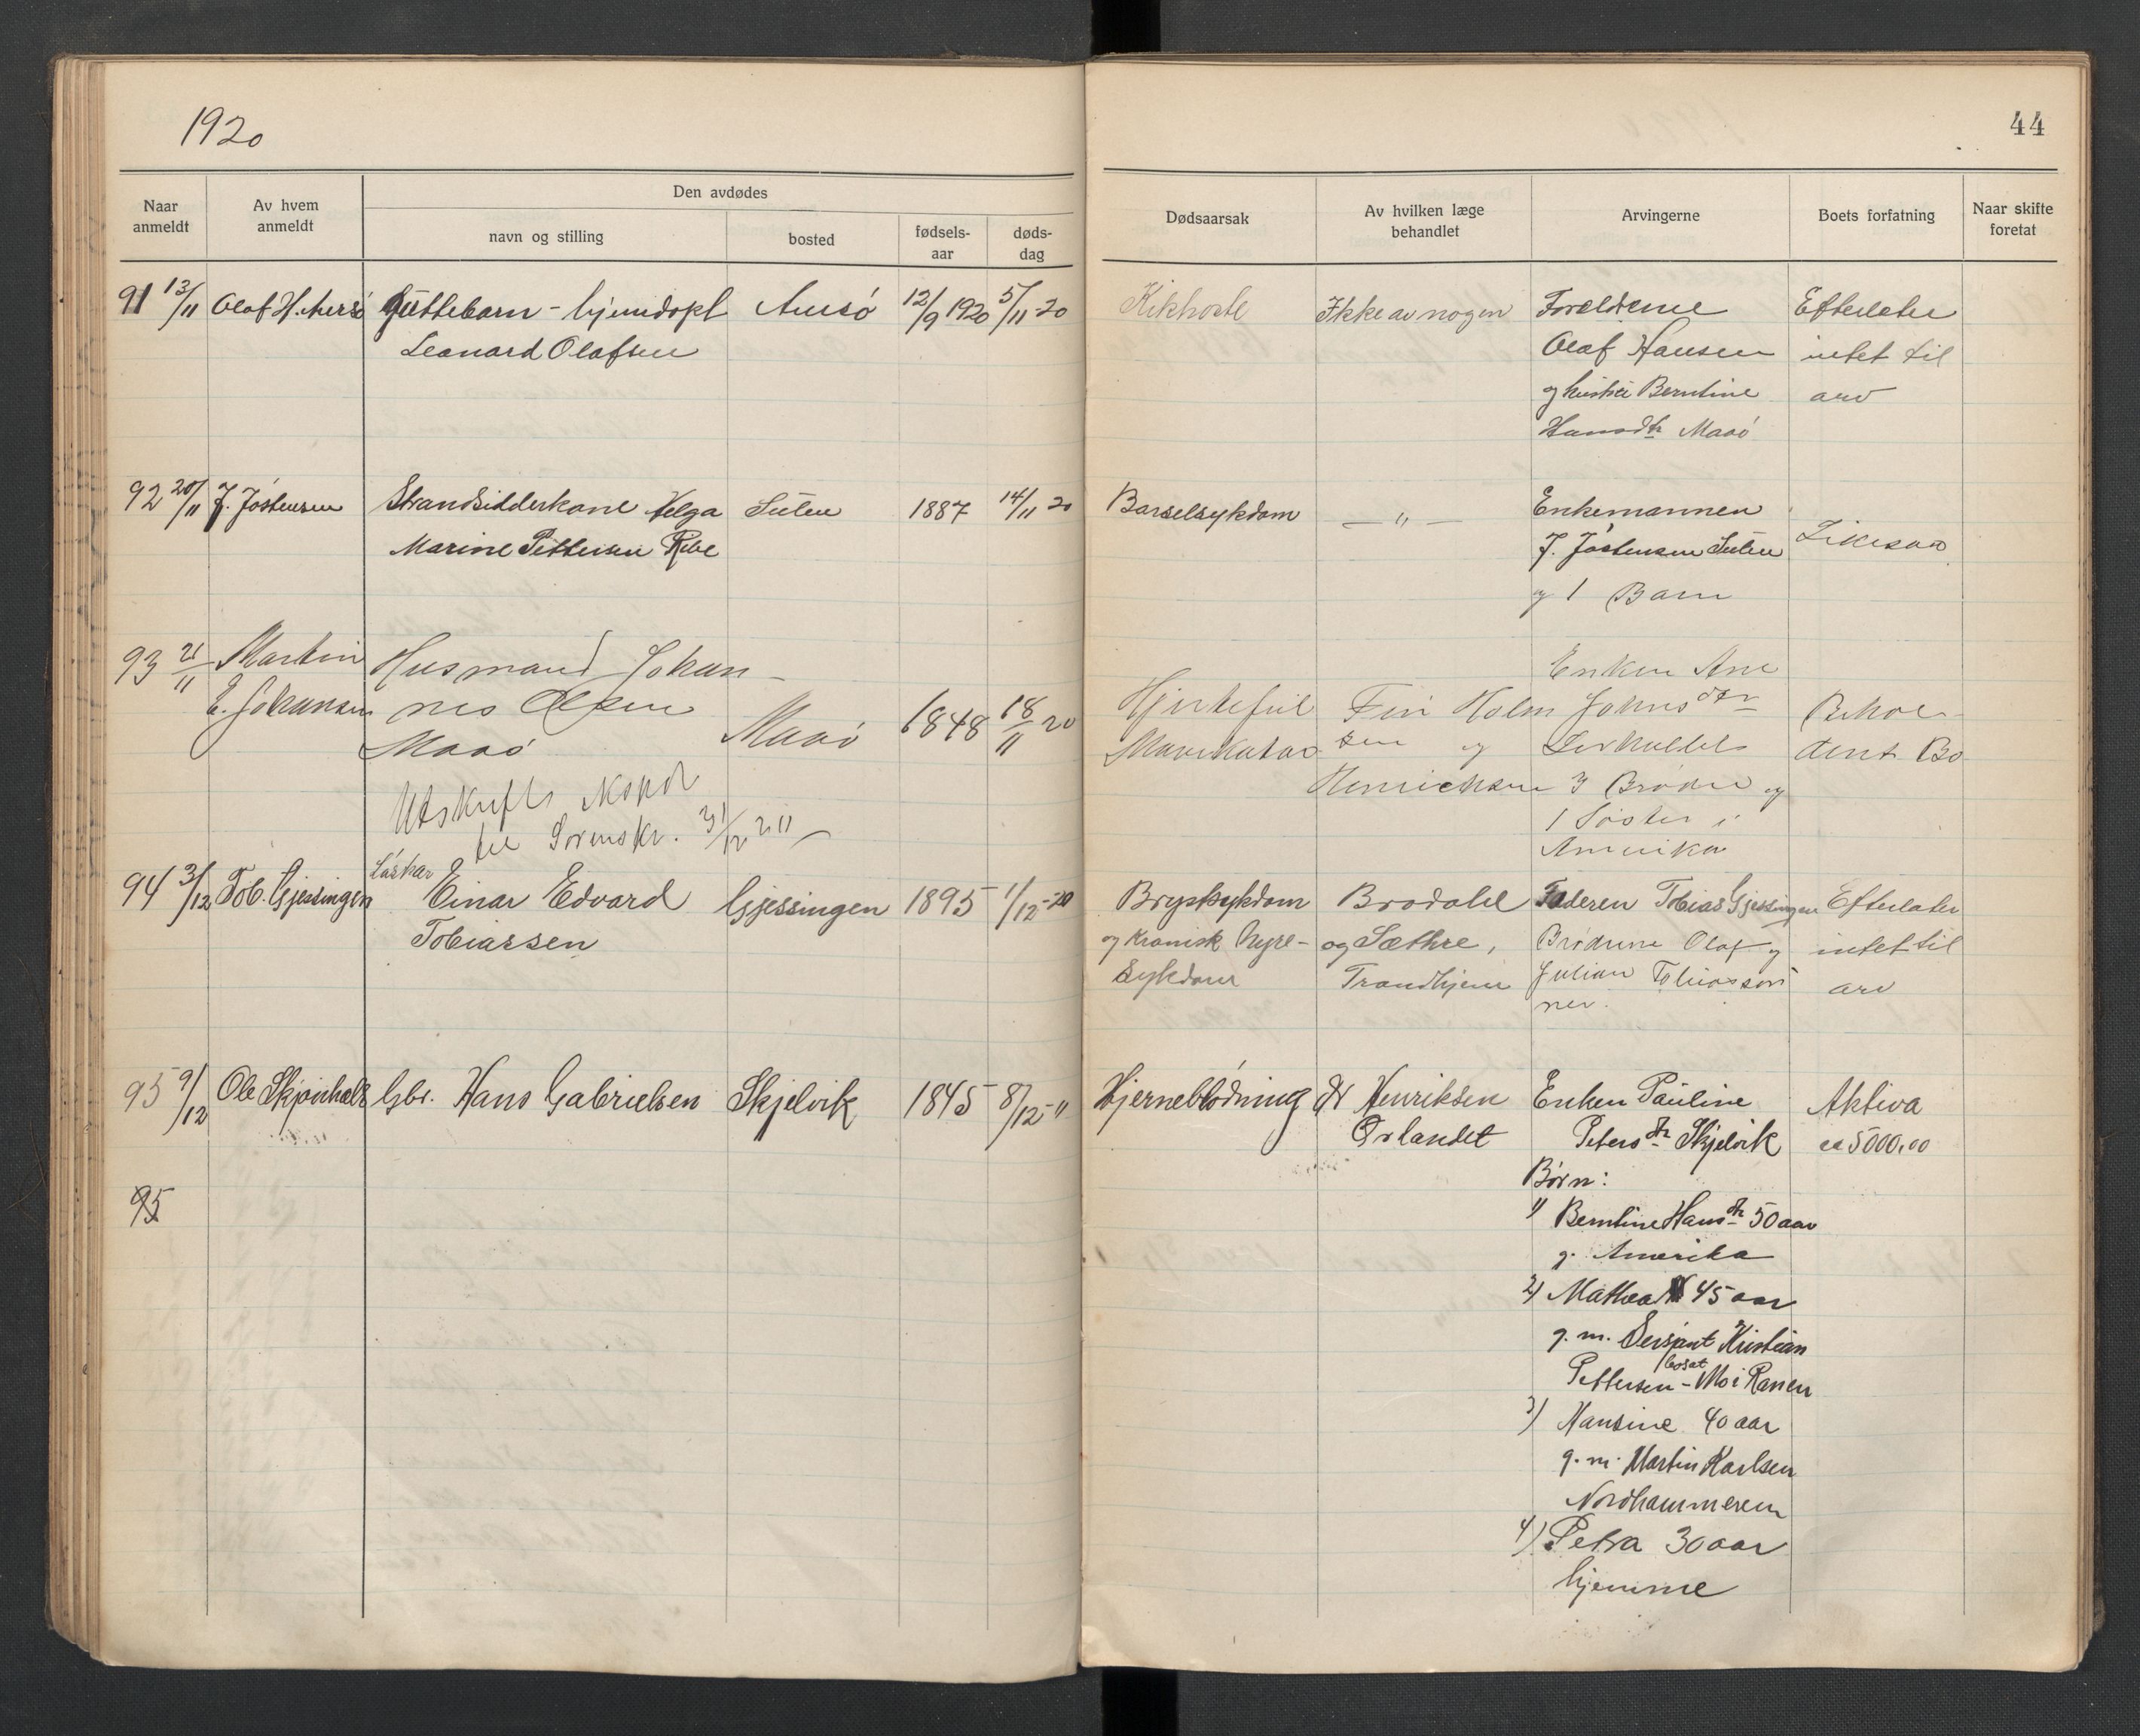 1920
44
Naar anmeldt
Av hvem anmeldt
Den avdødes
navn og stilling
bosted
fødsels-aar
døds-dag
Dødsaarsak
Av hvilken læge behandlet
Arvingerne
Boets forfatning
Naar skifte foretat
91 13/11 Olaf H. Aursø Guttebarn - hjemdøpt Aursø 12/9 1920 5/11 20 Kikhoste Ikke av nogen Forældrene Efterlater
Leonard Olafsen Olaf Hansen intet til
og hustru Berntine arv
Hansdtr Masø
92 20/11 J. Jøstensen Strandsidderkone Helga Sulen 1887 14/11 20 Barselsykdom — " — Enkemannen
Marine Pettersen Ribe J. Jøstensen Sulen Likesaa
og 1 Barn
93 21/11 Martin Husmand Johan- Enken Ane
E. Johansen nes Olsen Maaø 1848 18/11 20 Hjertefeil Fin Holm Johnsdtr Behol-
Maaø Mavekatar sen og Lerhullet dent Bo
Henrichsen 3 Brødre og
Utskrifts kopi 1 Søster i
til Sorenskr. 31/12 20 Amerika
94 3/12 Tob. Gjessingen Løskar Einar Edvard Gjessingen 1895 1/12-20 Brystsykdom Brodahl Faderen Tobias Gjessingen Efterlater
Tobiassen og kronisk Nyre- og Sæthre, Brødrene Olaf og intet til
sykdom Trondhjem Julian Tobiassøn arv
ner.
95 9/12 Ole Skjønhals Gbr. Hans Gabrielsen Skjelvik 1845 8/12-" Hjerneblødning dr Henriksen Enken Pauline Aktiva
Ørlandet Petersdtr Skjelvik ca 5000,00
Børn:
95
1) Berntine Hansdtr 50 aar
g. Amerika
2) Mathea 45 aar
g. m. Sersjant Kristian
Pettersen - bosat Mo i Ranen
3) Hansine 40 aar
g. m. Martin Karlsen
Nordhammeren
4) Petra 30 aar
hjemme